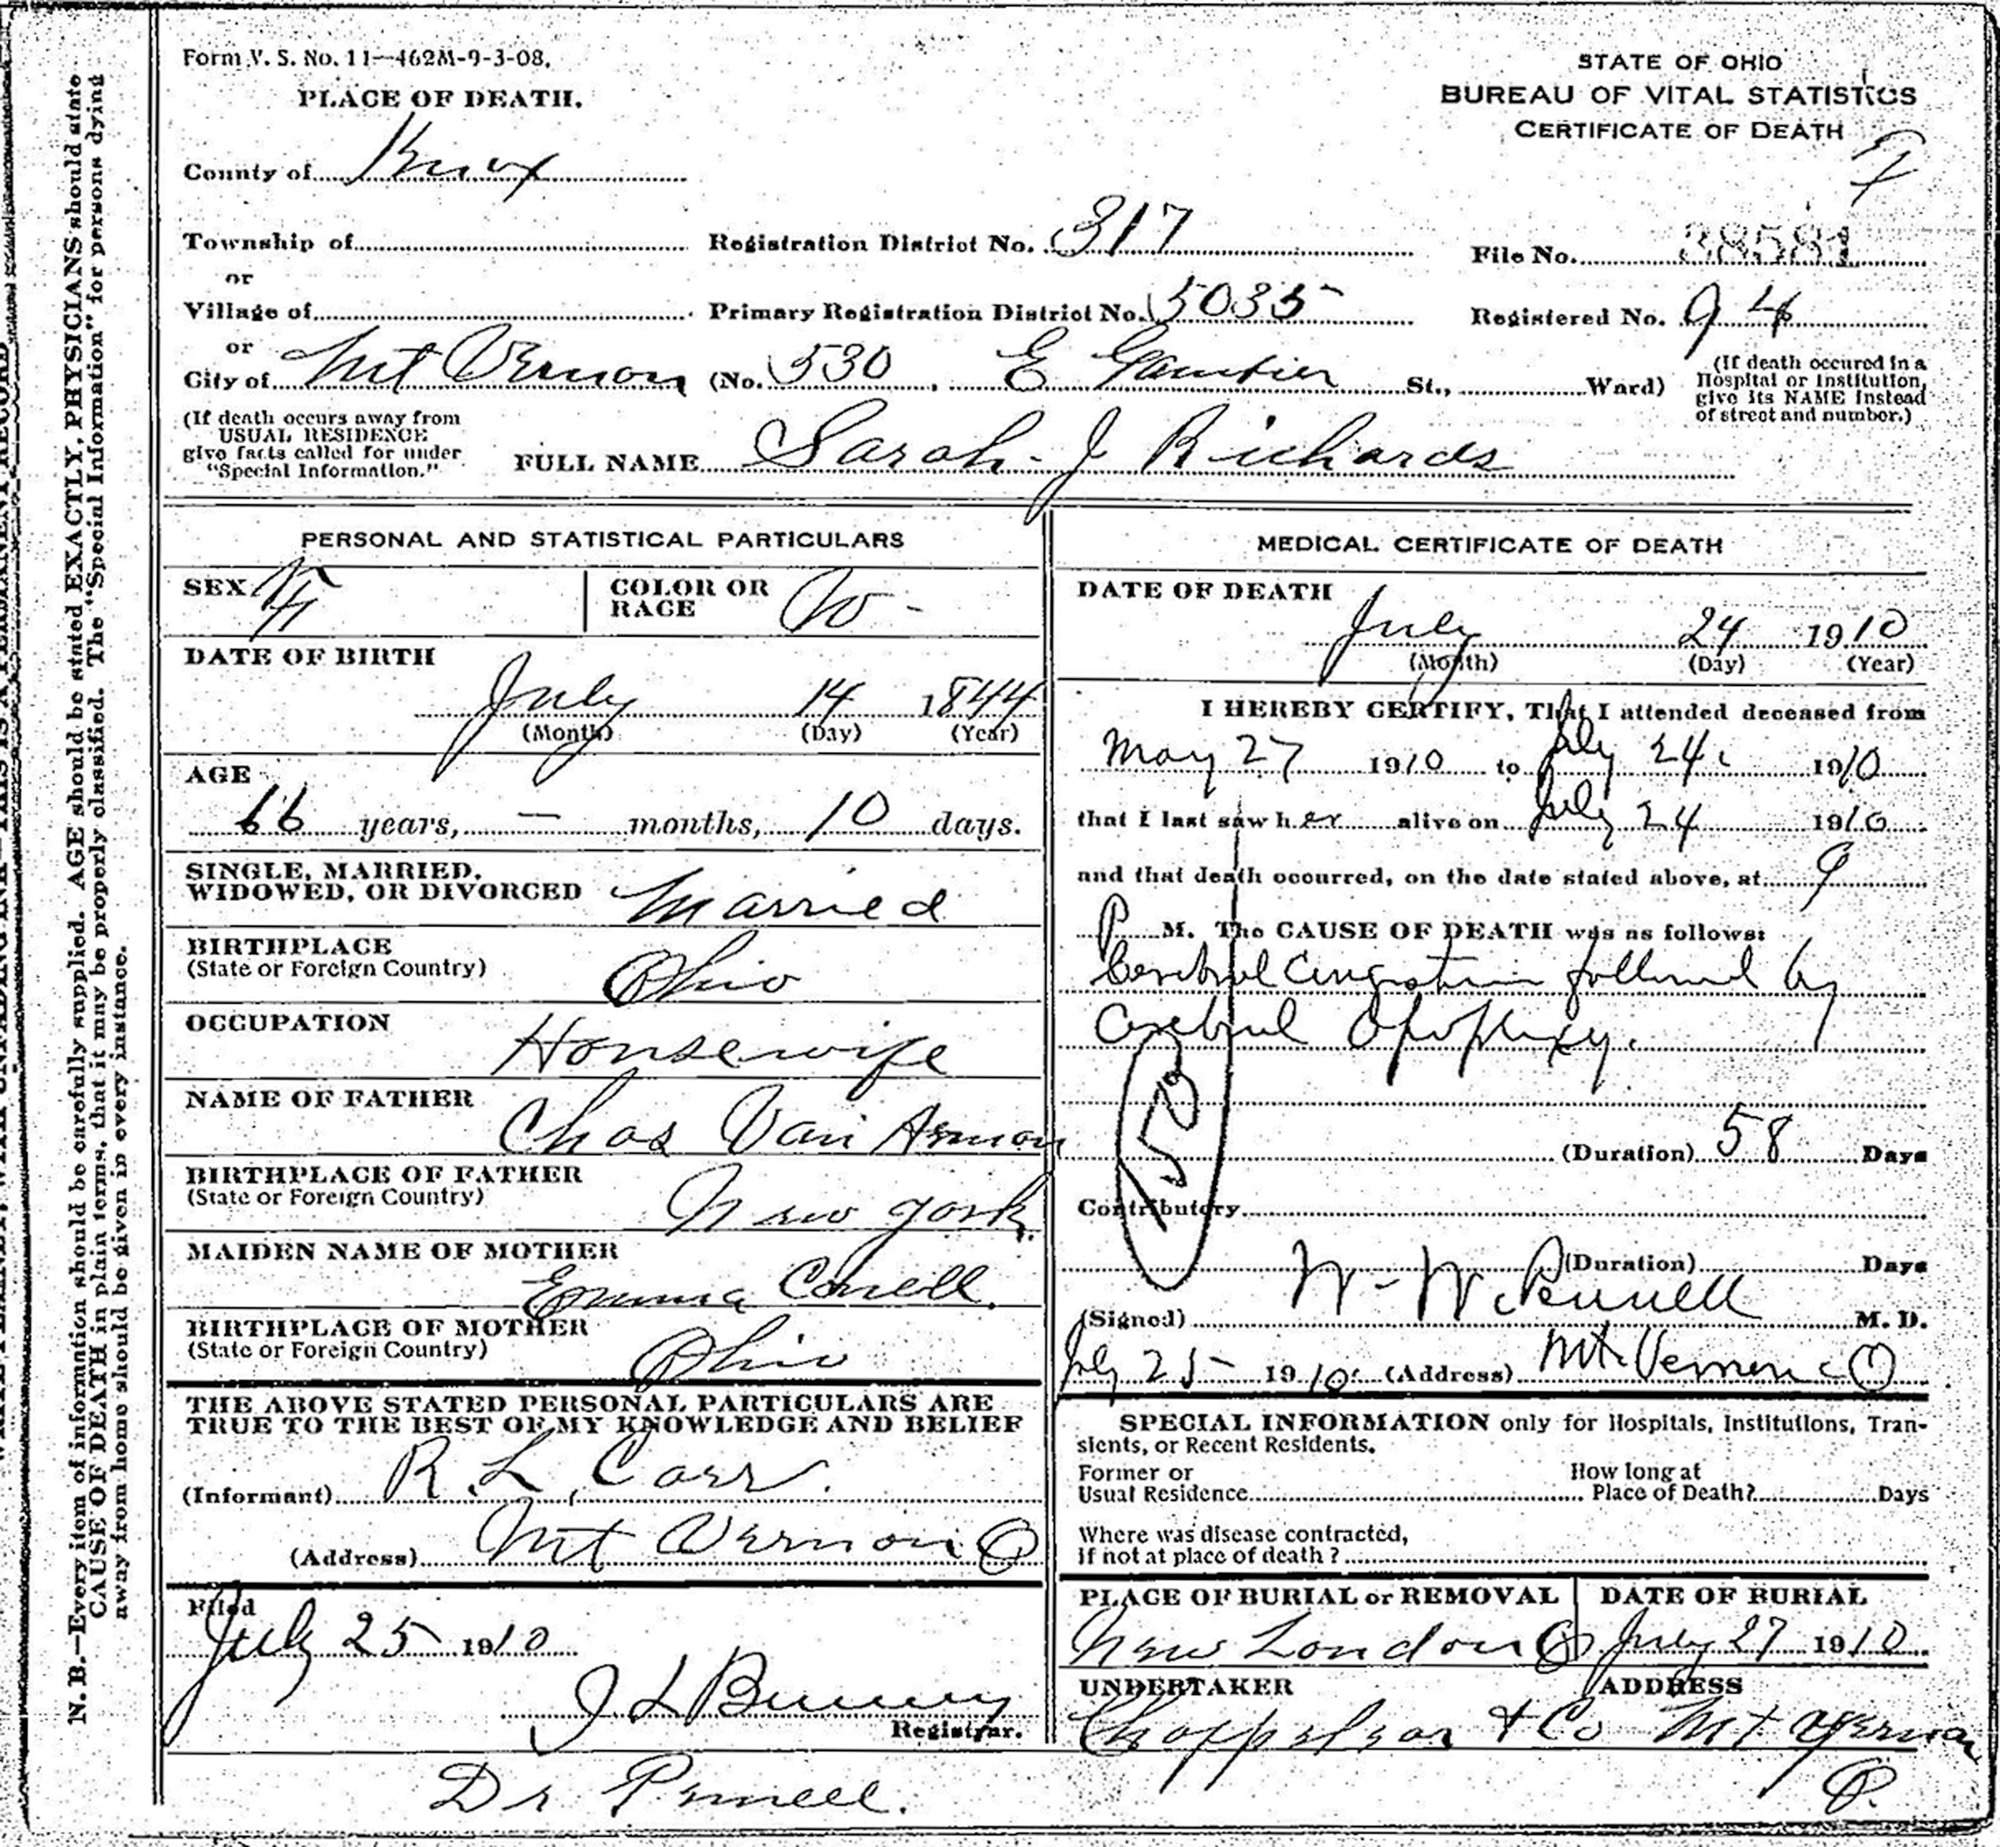 Form V. S. No. 11—462M-9-3-08.
PLACE OF DEATH.
STATE OF OHIO
BUREAU OF VITAL STATISTICS
CERTIFICATE OF DEATH
County of Knox
Township of
Registration District No. 317
File No. 38581
or
Village of
Primary Registration District No. 5035
Registered No. 94
or
City of Mt Vernon (No. 530, E Gambier St., Ward)
(If death occured in a Hospital or Institution, give its NAME instead of street and number.)
(If death occurs away from USUAL RESIDENCE give facts called for under "Special Information.")
FULL NAME Sarah J Richards
PERSONAL AND STATISTICAL PARTICULARS
SEX F
COLOR OR RACE W -
DATE OF BIRTH
July 14 1844
(Month) (Day) (Year)
AGE
66 years, — months, 10 days.
SINGLE, MARRIED, WIDOWED, OR DIVORCED Married
BIRTHPLACE
(State or Foreign Country) Ohio
OCCUPATION Housewife
NAME OF FATHER Chas Van Arman
BIRTHPLACE OF FATHER
(State or Foreign Country) New York
MAIDEN NAME OF MOTHER
Emma
BIRTHPLACE OF MOTHER
(State or Foreign Country) Ohio
THE ABOVE STATED PERSONAL PARTICULARS ARE
TRUE TO THE BEST OF MY KNOWLEDGE AND BELIEF
(Informant) R. L. Carr.
(Address) Mt Vernon O
Filed
July 25 1910
J L
Registrar.
MEDICAL CERTIFICATE OF DEATH
DATE OF DEATH
July 24 1910
(Month) (Day) (Year)
I HEREBY CERTIFY, That I attended deceased from
May 27 1910 to July 24 1910
that I last saw her alive on July 24 1910
and that death occurred, on the date stated above, at 9
P M. The CAUSE OF DEATH was as follows:
Cerebral Congestion followed by
Cerebral Apoplexy.
150
(Duration) 58 Days
Contributory
(Duration) Days
(Signed) W. W. Pennell M. D.
July 25 1910 (Address) Mt. Vernon O
SPECIAL INFORMATION only for Hospitals, Institutions, Tran-
sients, or Recent Residents.
Former or Usual Residence
How long at Place of Death? Days
Where was disease contracted,
If not at place of death?
PLACE OF BURIAL or REMOVAL
New London O
DATE OF BURIAL
July 27 1910
UNDERTAKER
Chappelear & Co
ADDRESS
Mt Vernon
O.
Dr Pennell.
N. B.—Every item of information should be carefully supplied. AGE should be stated EXACTLY. PHYSICIANS should state
CAUSE OF DEATH in plain terms, that it may be properly classified. The "Special Information" for persons dying
away from home should be given in every instance.